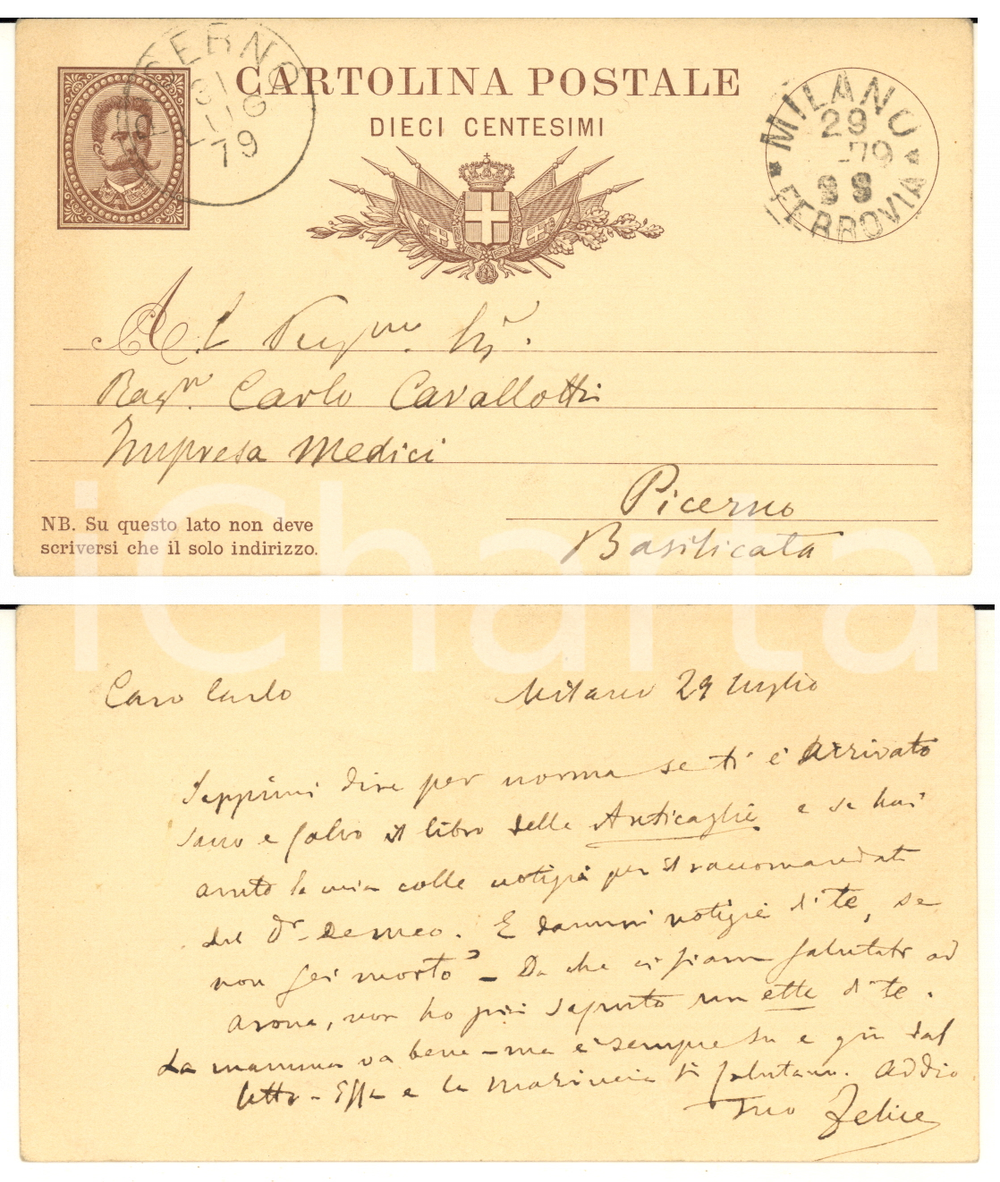 CARTOLINA POSTALE
DIECI CENTESIMI
CERNO
31
LUG
79
MILANO
29
-79
8 S
FERROVIA
Al
Ragr. Carlo Cavallotti
Impresa Medici
Picerno
Basilicata
NB. Su questo lato non deve
scriversi che il solo indirizzo.
iCharta
Caro Carlo
Milano 29 luglio
Sappimi dire per norma se ti è arrivato
sano e salvo il libro delle Anticaglie e se hai
avuto la mia colle notizie per il raccomandato
del Dr. Demeo. E dammi notizie di te, se
non sei morto – Da che ci siam salutati ad
Arona, non ho più saputo un ette di te.
La mamma va bene – ma è sempre su e giù dal
letto – Essa e la ti salutano. Addio
Tuo Felice